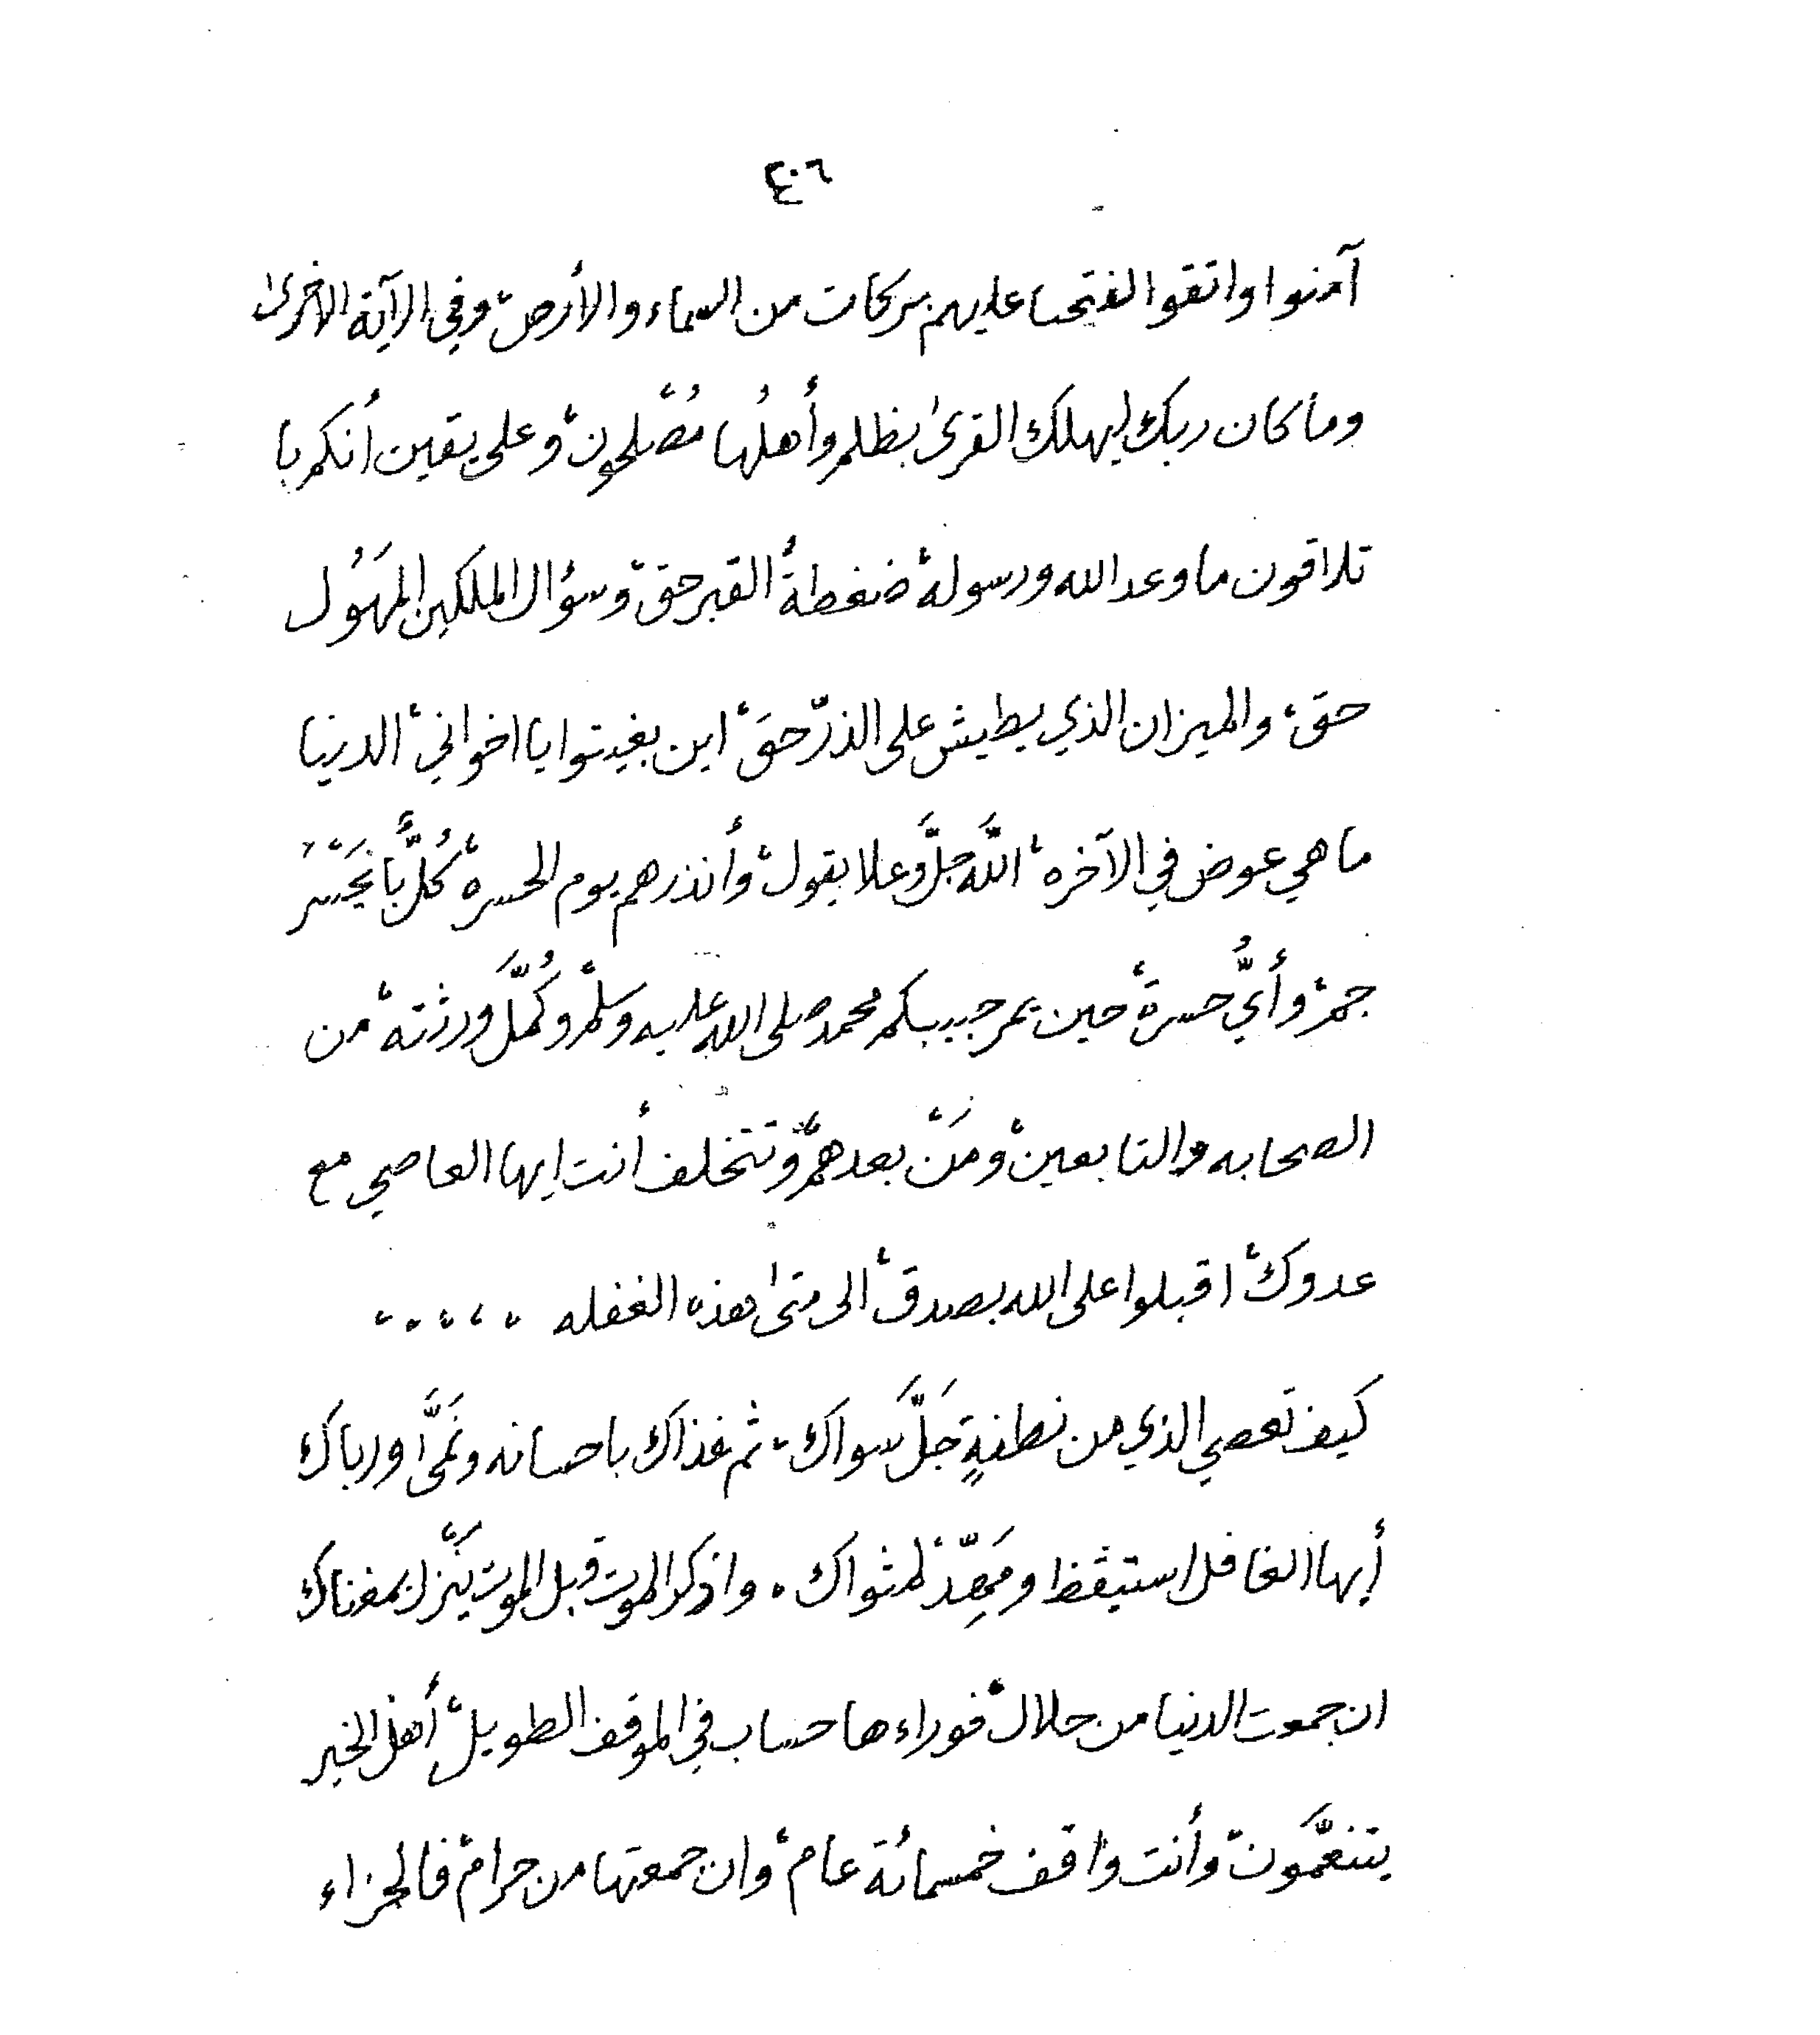 ٤٠٦
آمنوا واتقوا لفتحنا عليهم بركات من السماء والأرض، وفي الآية الأخرىٰ
وما كان ربك ليهلك القرىٰ بظلم وأهلُها مُصْلحون، وعلى يقين أنكم با
تلاقون ما وعد الله ورسوله، ضغطةُ القبر حق، وسؤال الملكين المَهُول
حق، والميزان الذي يطيش على الذرّ حَق، اين بغيتوا يا اخواني، الدنيا
ما هي عوض في الآخره، اللَّه جلَّ وعلا يقول، وأنذرهم يوم الحسرة، كُلَّ با يَحْسَر
جم، وأيُّ حسرة، حين يمر حبيبكم محمد صلى الله عليه وسلم، وكُمَّل ورثته، من
الصحابه والتابعين، ومَنْ بعدهم، وتتخلف أنت ايها العاصي مع
عدوك، اقبلوا على الله بصدق، الى متىٰ هذه الغفله ،،،،،،
كيف تعصي الذي من نطفةٍ جَلَّ سَواك، ثم غذاك باحسانه ونَمَّىٰ ورباك
أيها الغافل استيقظ ومَهِّد لمثواك، واذكر الموت قبل الموت يَنْزل بمغناك
ان جمعت الدنيا من حلال، فوراءها حساب في الموقف الطويل، أهل الخير
يتنعَّمون، وأنت واقف خمسمائة عام، وان جمعتها من حرام، فالجزاء